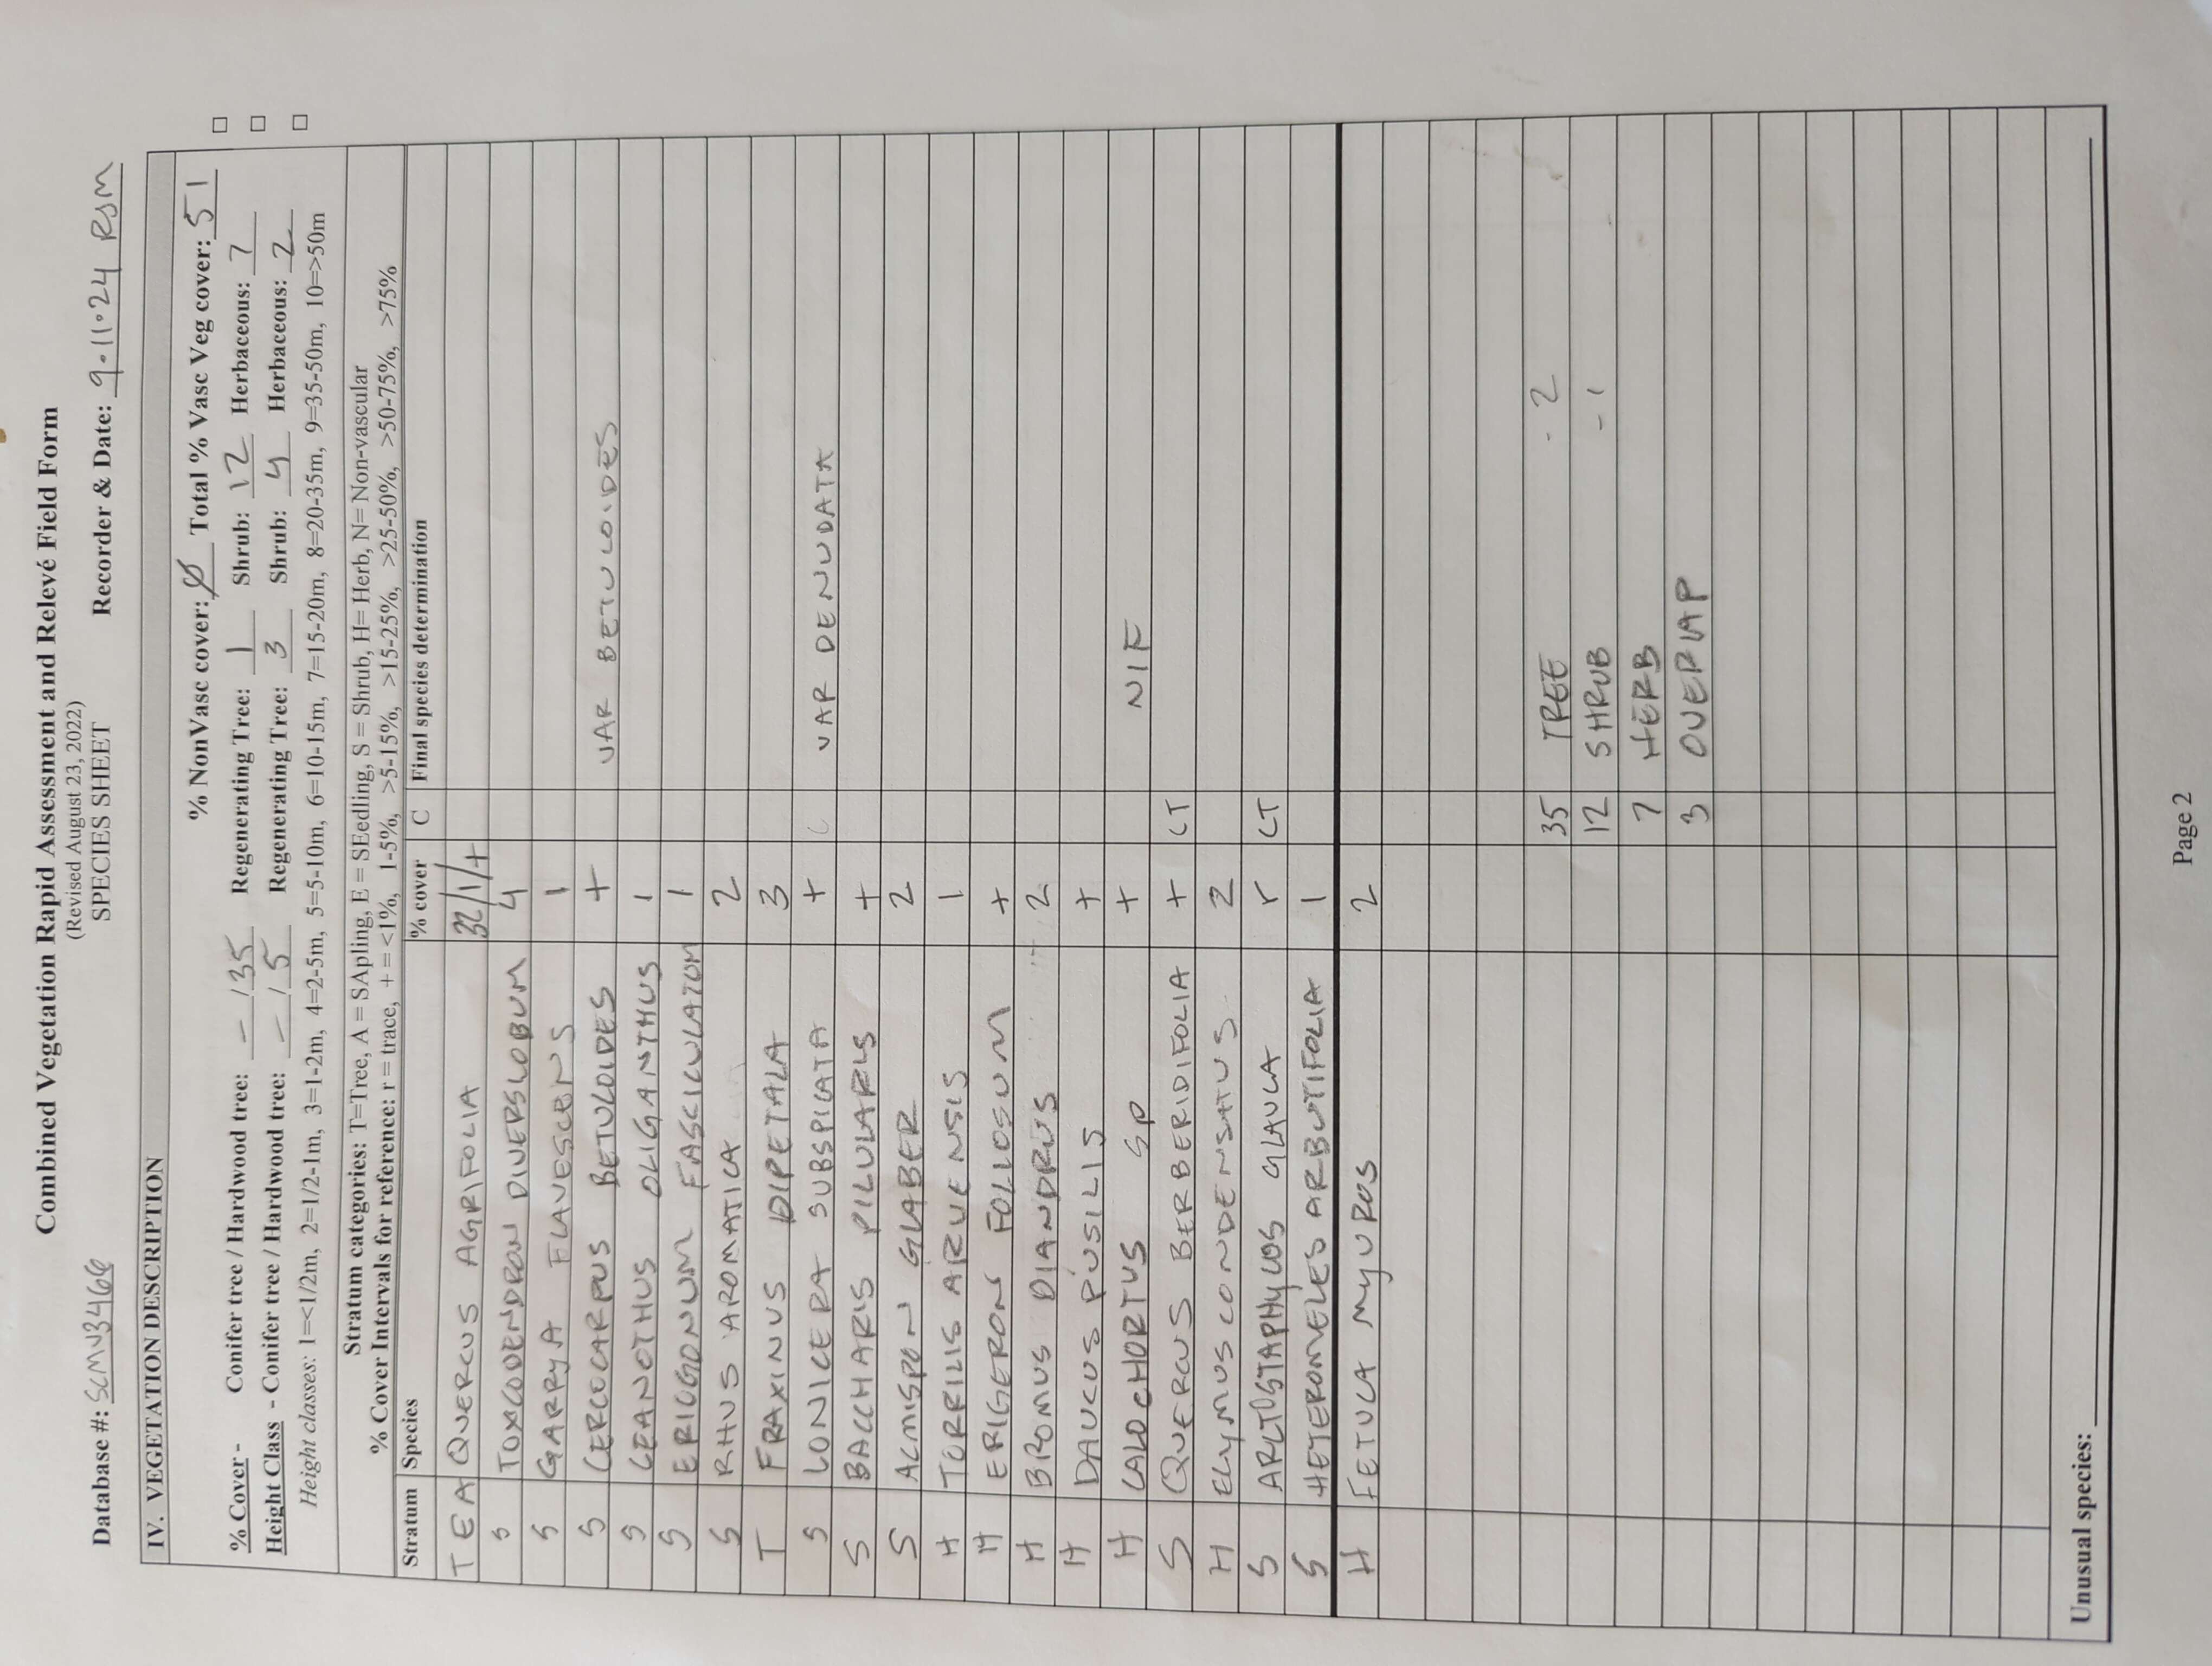 Combined Vegetation Rapid Assessment and Relevé Field Form
(Revised August 23, 2022)
SPECIES SHEET
Database #: SCMV3466 Recorder & Date: 9.11.24 RJM
IV. VEGETATION DESCRIPTION
% NonVasc cover: Ø Total % Vasc Veg cover: 51
% Cover - Conifer tree / Hardwood tree: — / 35 Regenerating Tree: 1 Shrub: 12 Herbaceous: 7 □
Height Class - Conifer tree / Hardwood tree: — / 5 Regenerating Tree: 3 Shrub: 4 Herbaceous: 2 □
Height classes: 1=<1/2m, 2=1/2-1m, 3=1-2m, 4=2-5m, 5=5-10m, 6=10-15m, 7=15-20m, 8=20-35m, 9=35-50m, 10=>50m
Stratum categories: T=Tree, A = SApling, E = SEedling, S = Shrub, H= Herb, N= Non-vascular
% Cover Intervals for reference: r = trace, + = <1%, 1-5%, >5-15%, >15-25%, >25-50%, >50-75%, >75%
Stratum Species % cover C Final species determination
TEA QUERCUS AGRIFOLIA 32/1/+
S TOXICODENDRON DIVERSILOBUM 4
S GARRYA FLAVESCENS 1
S CERCOCARPUS BETULOIDES + VAR BETULOIDES
S CEANOTHUS OLIGANTHUS 1
S ERIOGONUM FASCICULATUM 1
S RHUS AROMATICA 2
T FRAXINUS DIPETALA 3
S LONICERA SUBSPICATA + VAR DENUDATA
S BACCHARIS PILULARIS +
S ACMISPON GLABER 2
H TORRILIS ARVENSIS 1
H ERIGERON FOLIOSUM +
H BROMUS DIANDRUS 2
H DAUCUS PUSILLIS +
H CALOCHORTUS SP + NIF
S QUERCUS BERBERIDIFOLIA + CT
H ELYMUS CONDENSATUS 2
S ARCTOSTAPHYLOS GLAUCA r CT
S HETEROMELES ARBUTIFOLIA 1
H FETUCA MYUROS 2
35 TREE - 2
12 SHRUB - 1
7 HERB
3 OVERLAP
Unusual species:
Page 2